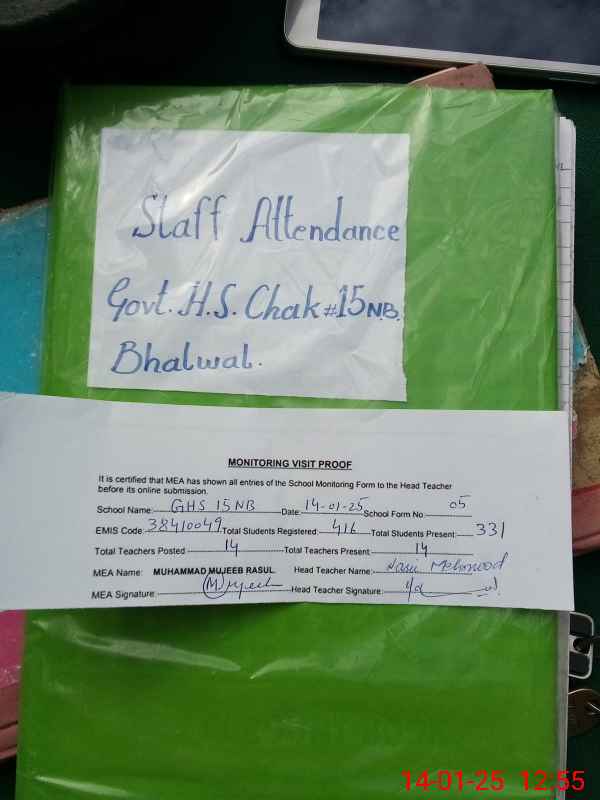 Staff Attendance
Govt. H.S. Chak #15 N.B.
Bhalwal.
MONITORING VISIT PROOF
It is certified that MEA has shown all entries of the School Monitoring Form to the Head Teacher
before its online submission.
School Name: GHS 15 NB Date: 14-01-25 School Form No: 05
EMIS Code: 38410049 Total Students Registered: 416 Total Students Present: 331
Total Teachers Posted 14 Total Teachers Present: 14
MEA Name: MUHAMMAD MUJEEB RASUL Head Teacher Name: Mehmood
MEA Signature: Mujeeb Head Teacher Signature:
14-01-25 12:55